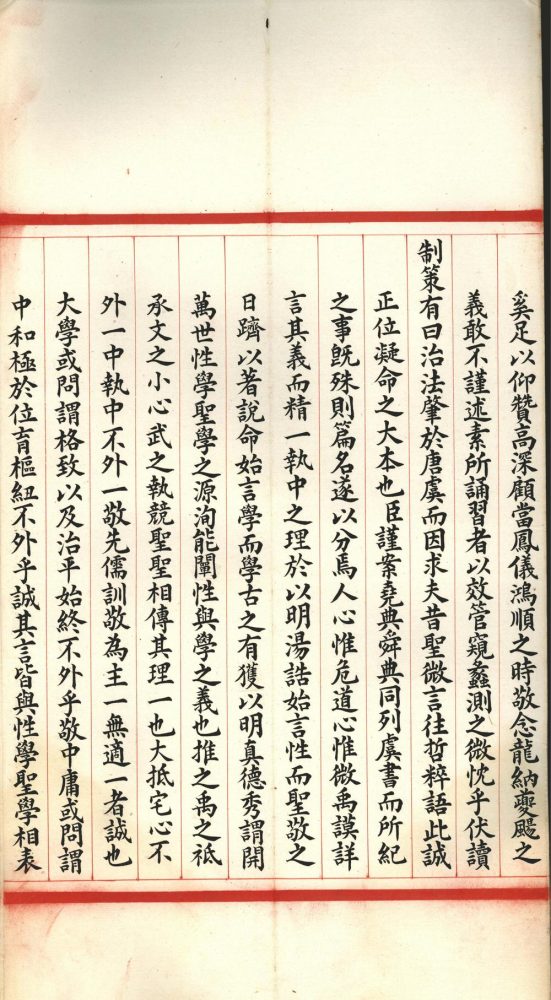 奚足以仰贊高深顧當鳳儀鴻順之時敬念龍納夔颺之
義敢不謹述素所誦習者以效管窺蠡測之微忱乎伏讀
制策有曰治法肇於唐虞而因求夫昔聖微言往哲粹語此誠
正位凝命之大本也臣謹案堯典舜典同列虞書而所紀
之事既殊則篇名遂以分焉人心惟危道心惟微禹謨詳
言其義而精一執中之理於以明湯誥始言性而聖敬之
日躋以著說命始言學而學古之有獲以明真德秀謂開
萬世性學聖學之源洵能闡性與學之義也推之禹之祗
承文之小心武之執競聖聖相傳其理一也大抵宅心不
外一中執中不外一敬先儒訓敬為主一無適一者誠也
大學或問謂格致以及治平始終不外乎敬中庸或問謂
中和極於位育樞紐不外乎誠其言皆與性學聖學相表